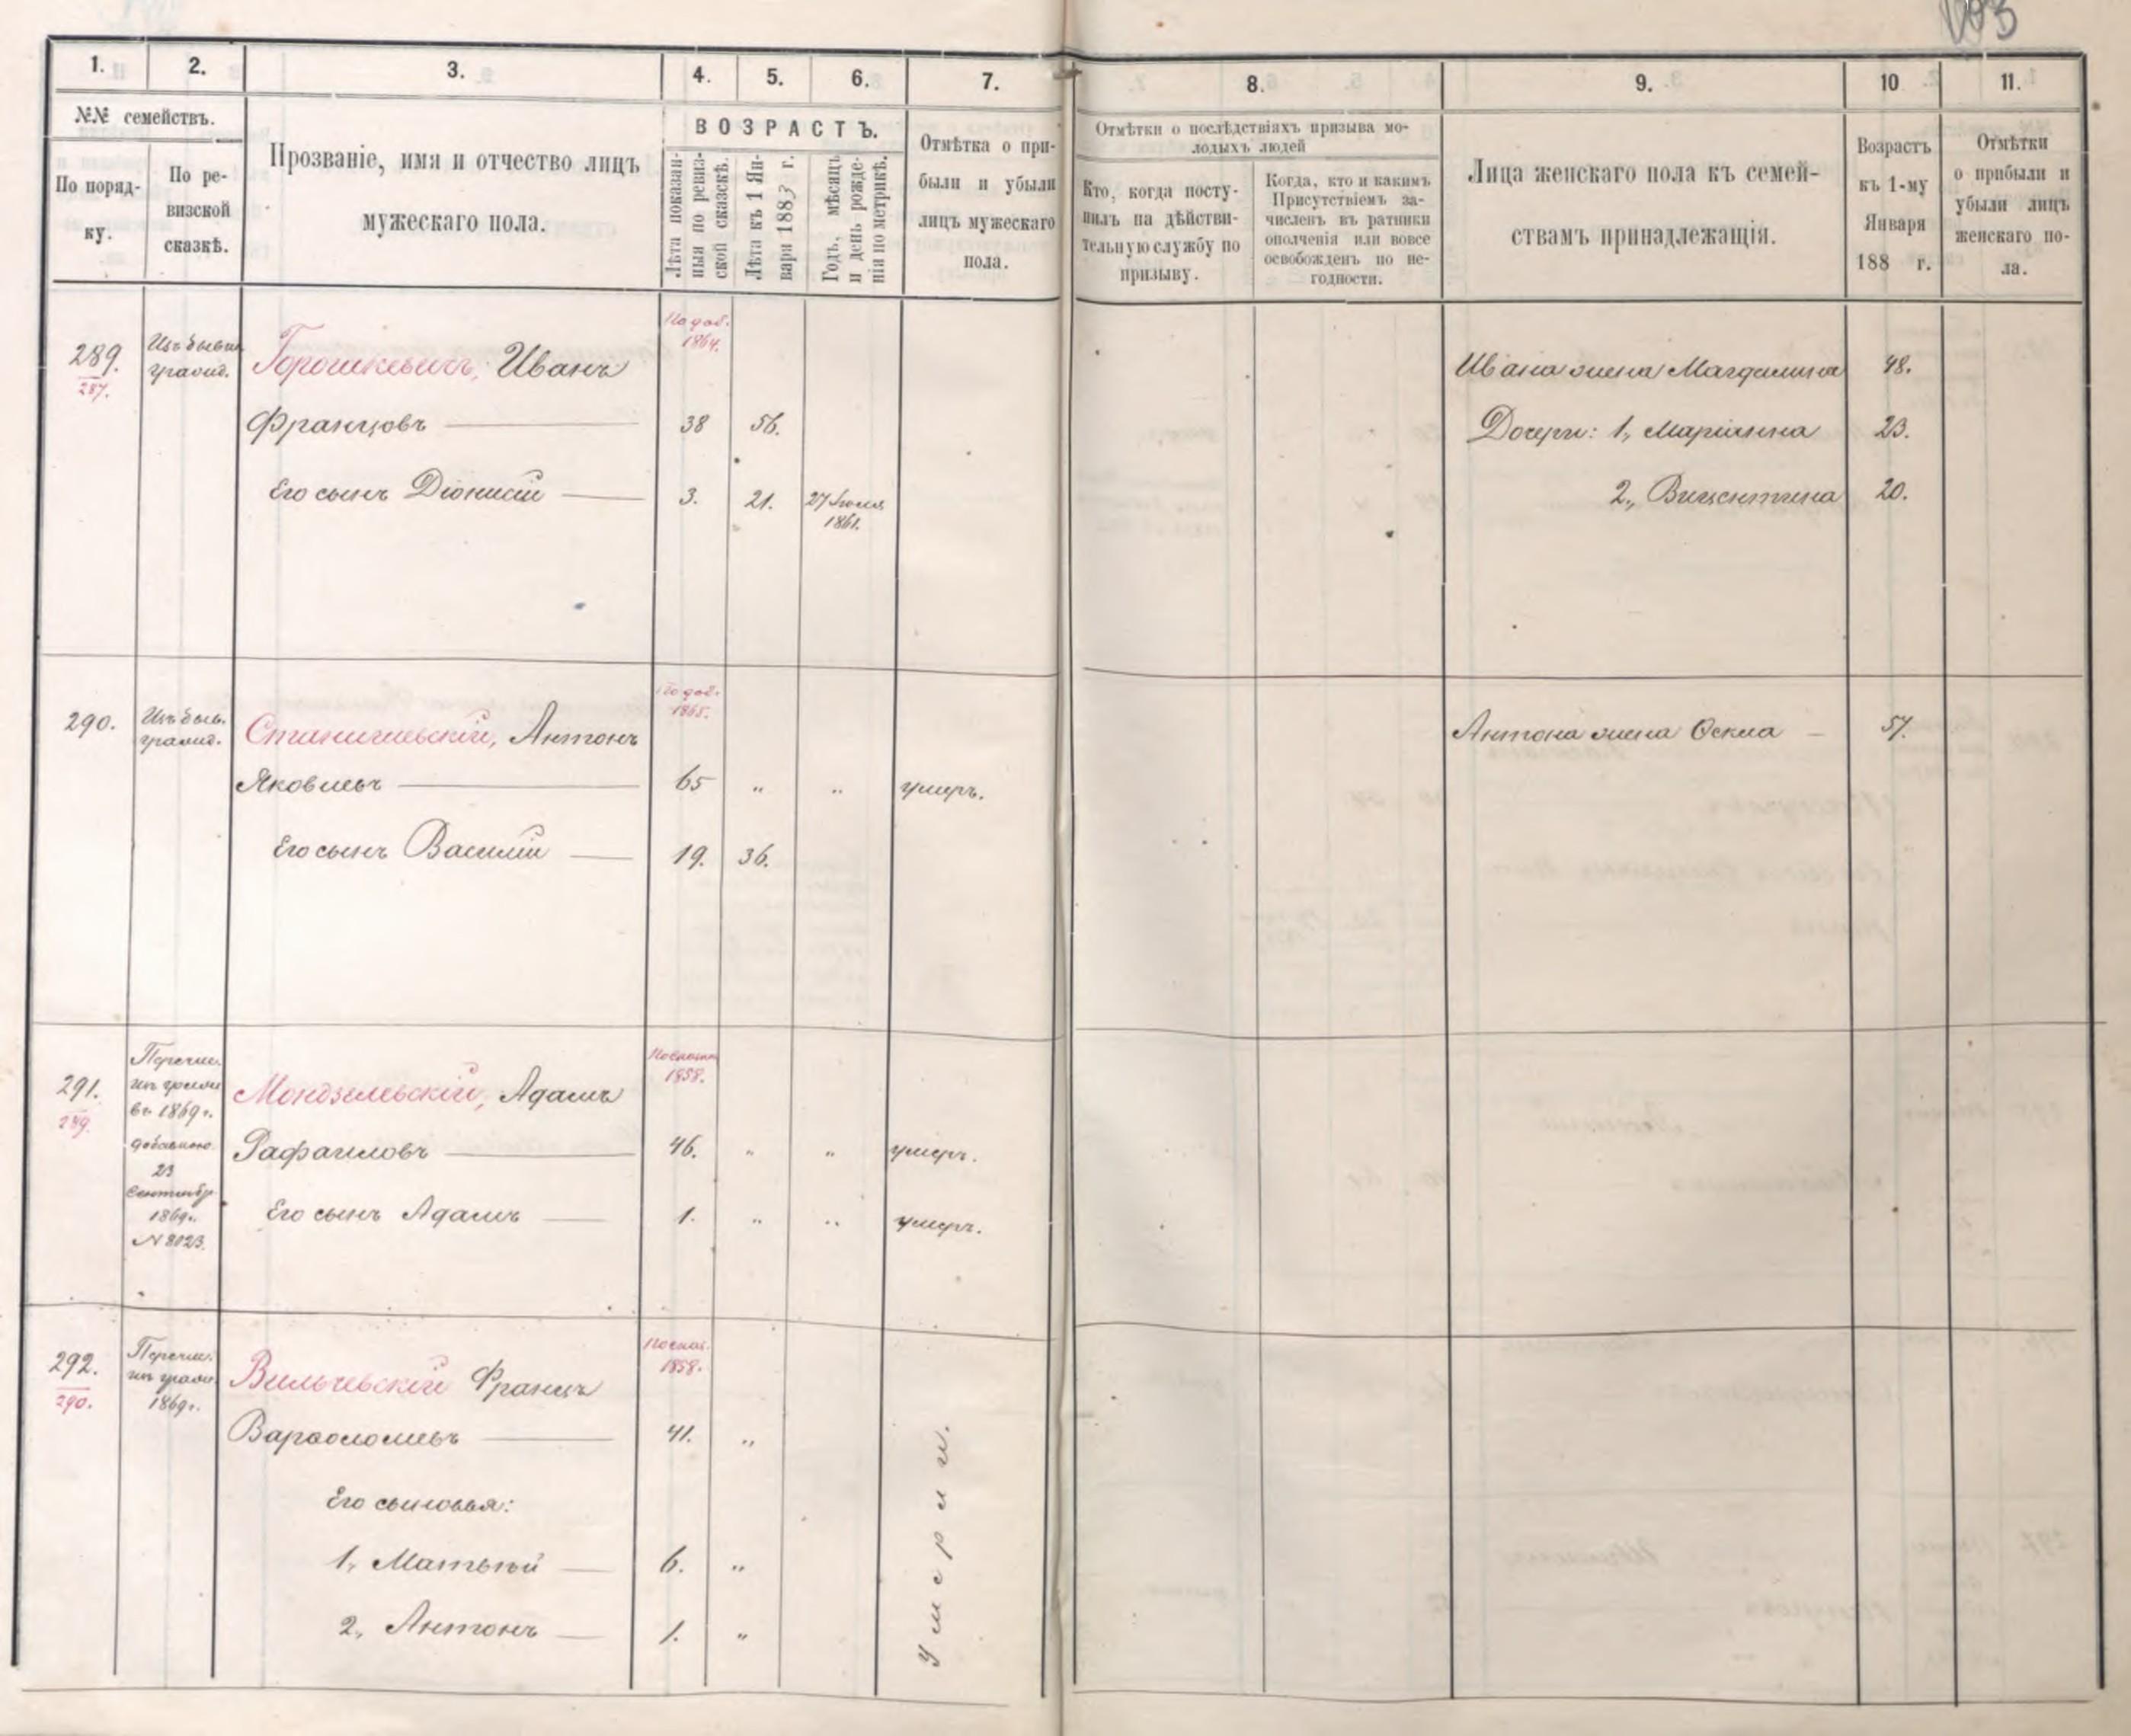 1.
2.
3.
4.
5.
6.
7.
8.
9.
10
11.
№№ семействъ.
По поряд-
ку.
По ре-
визской
сказкѣ.
Прозваніе, имя и отчество лицъ
мужескаго пола.
ВОЗРАСТЪ.
Лѣта показан-
ныя по ревиз-
ской сказкѣ.
Лѣта къ 1 Ян-
варя 1883 г.
Годъ, мѣсяцъ
и день рожде-
нія по метрикѣ.
Отмѣтка о при-
были и убыли
лицъ мужескаго
пола.
Отмѣтки о послѣдствіяхъ призыва мо-
лодыхъ людей
Кто, когда посту-
пилъ на дѣйстви-
тельную службу по
призыву.
Когда, кто и какимъ
Присутствіемъ за-
численъ въ ратники
ополченія или вовсе
освобожденъ по не-
годности.
Лица женскаго пола къ семей-
ствамъ принадлежащія.
Возрастъ
къ 1-му
Января
188 г.
Отмѣтки
о прибыли и
убыли лицъ
женскаго по-
ла.
289.
287.
Изъ бывш.
гражд.
Горошкевичъ, Иванъ
По доб.
1864.
Ивана жена Магдалина 48.
Францовъ 38 56.
Дочери: 1, Маріанна 23.
Его сынъ Діонисій 3. 21. 27 Іюля
1861.
2, Вицентина 20.
290.
Изъ быв.
гражд.
Станишевскій, Антонъ
По доб.
1865.
Антона жена 57.
Яковлевъ 65 " " умеръ.
Его сынъ Василій 19. 36.
291.
289.
Перечис.
изъ гражд.
въ 1869 г.
добавлено
23
Сентябр.
1869 г.
№ 8023.
Мондзелевскій, Адамъ
1858.
Рафаиловъ 46. " " умеръ.
Его сынъ Адамъ 1. " " умеръ.
292.
290.
Перечис.
изъ гражд.
1869 г.
Вильчевскій Францъ
По сказ.
1858.
Варѳоломеевъ 41. "
Его сыновья:
1, Матвѣй 6. "
2, Антонъ 1. "
Умерли.